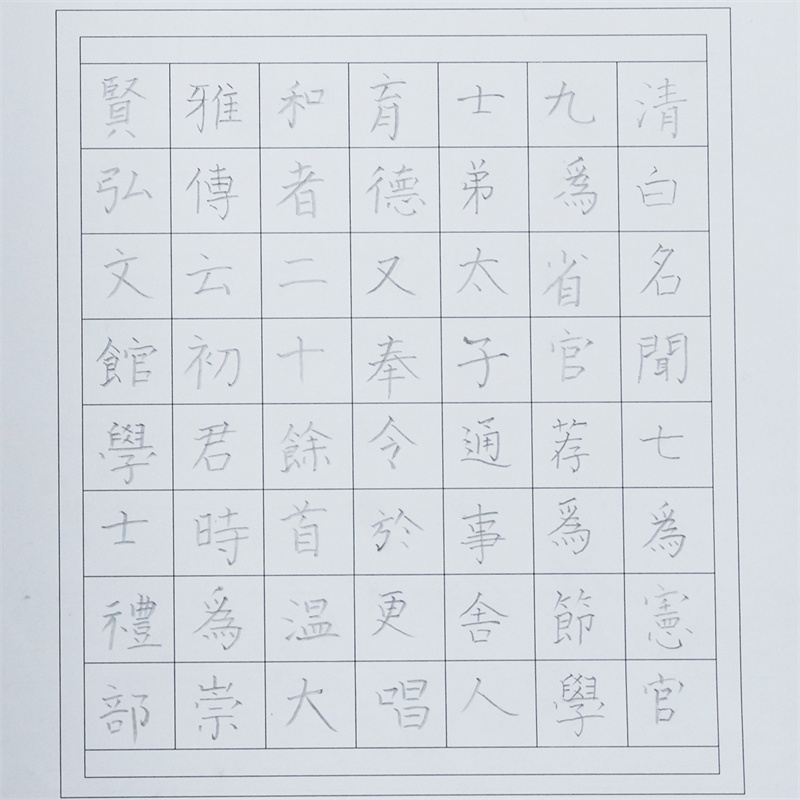 清白名聞七爲憲官
九爲省官荐爲節學
士弟太子通事舍人
育德又奉令於更唱
和者二十餘首温大
雅傳云初君時爲崇
賢弘文館學士禮部